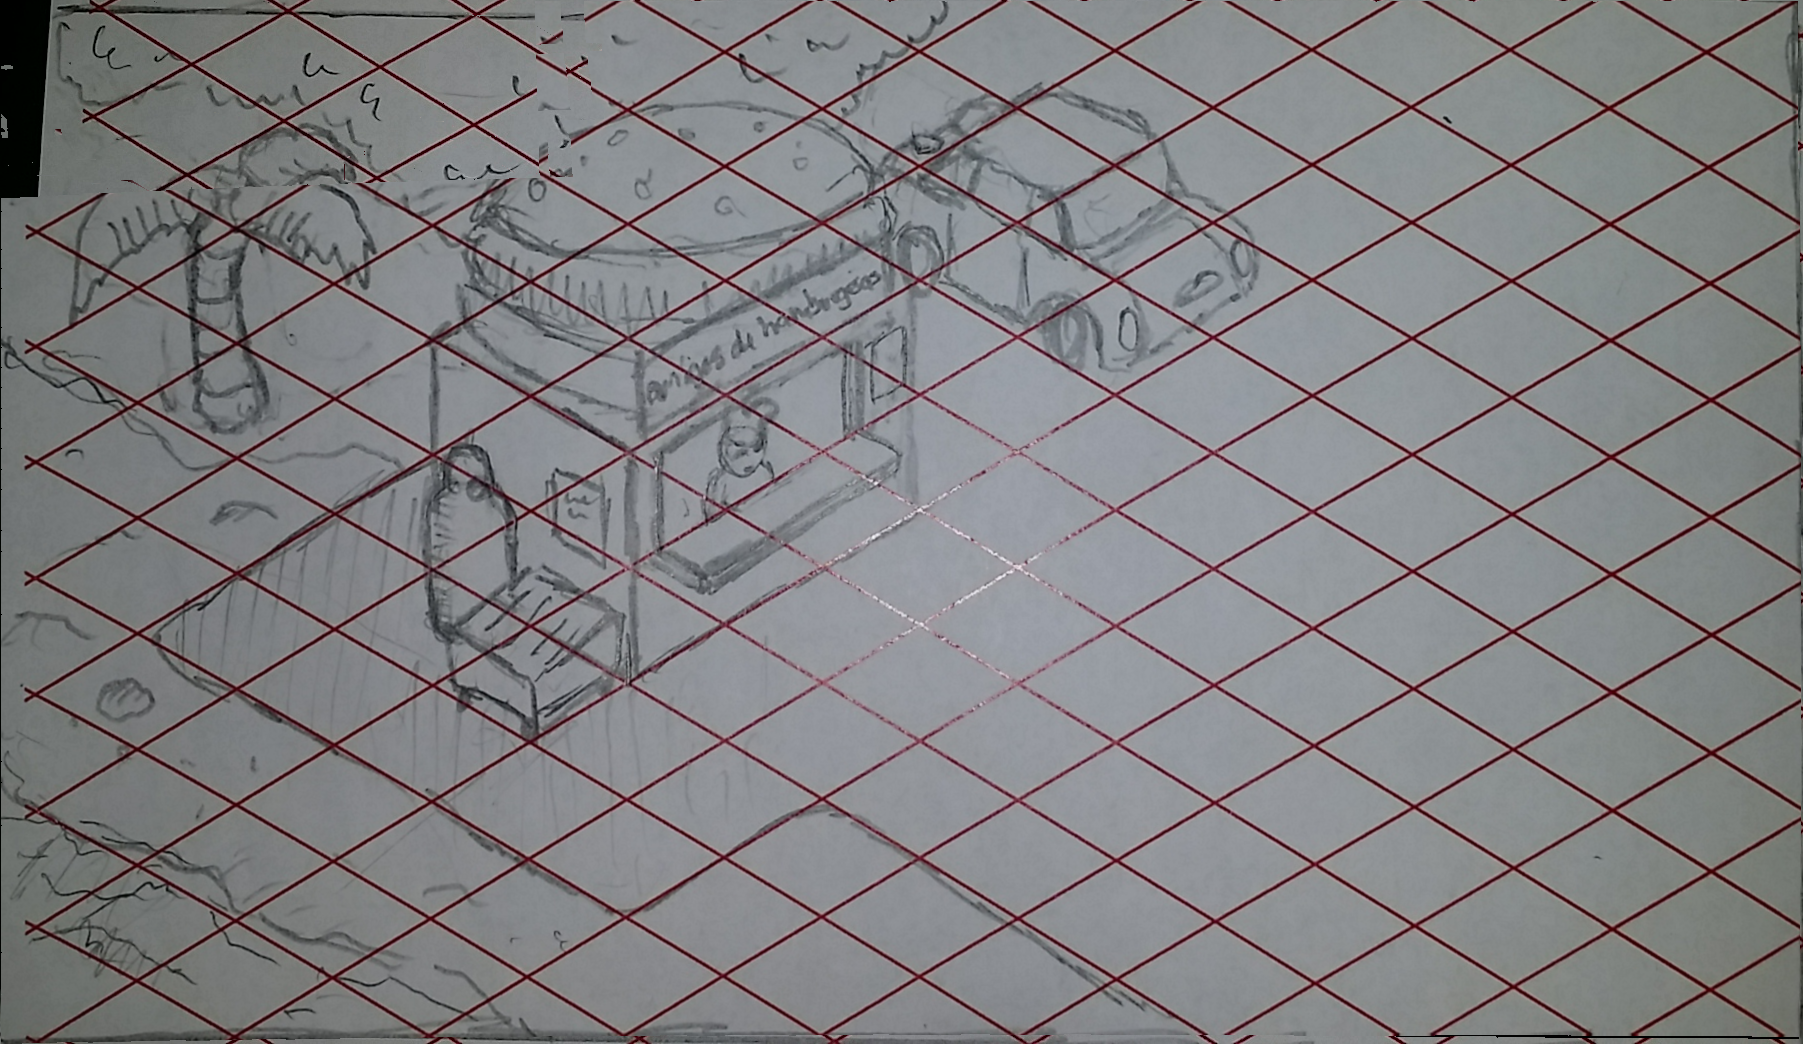 amigos de hamburgeos